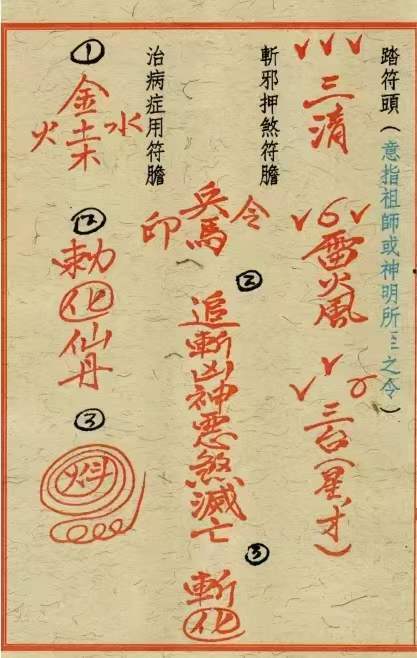 踏符頭(意指祖師或神明所之令)
三清
雷火風
三台(星才)
斬邪押煞符膽
令
兵馬
印
②
追斬凶神惡煞滅亡
③
斬化
治病症用符膽
①
金
水
土木
火
②
勅化仙丹
③